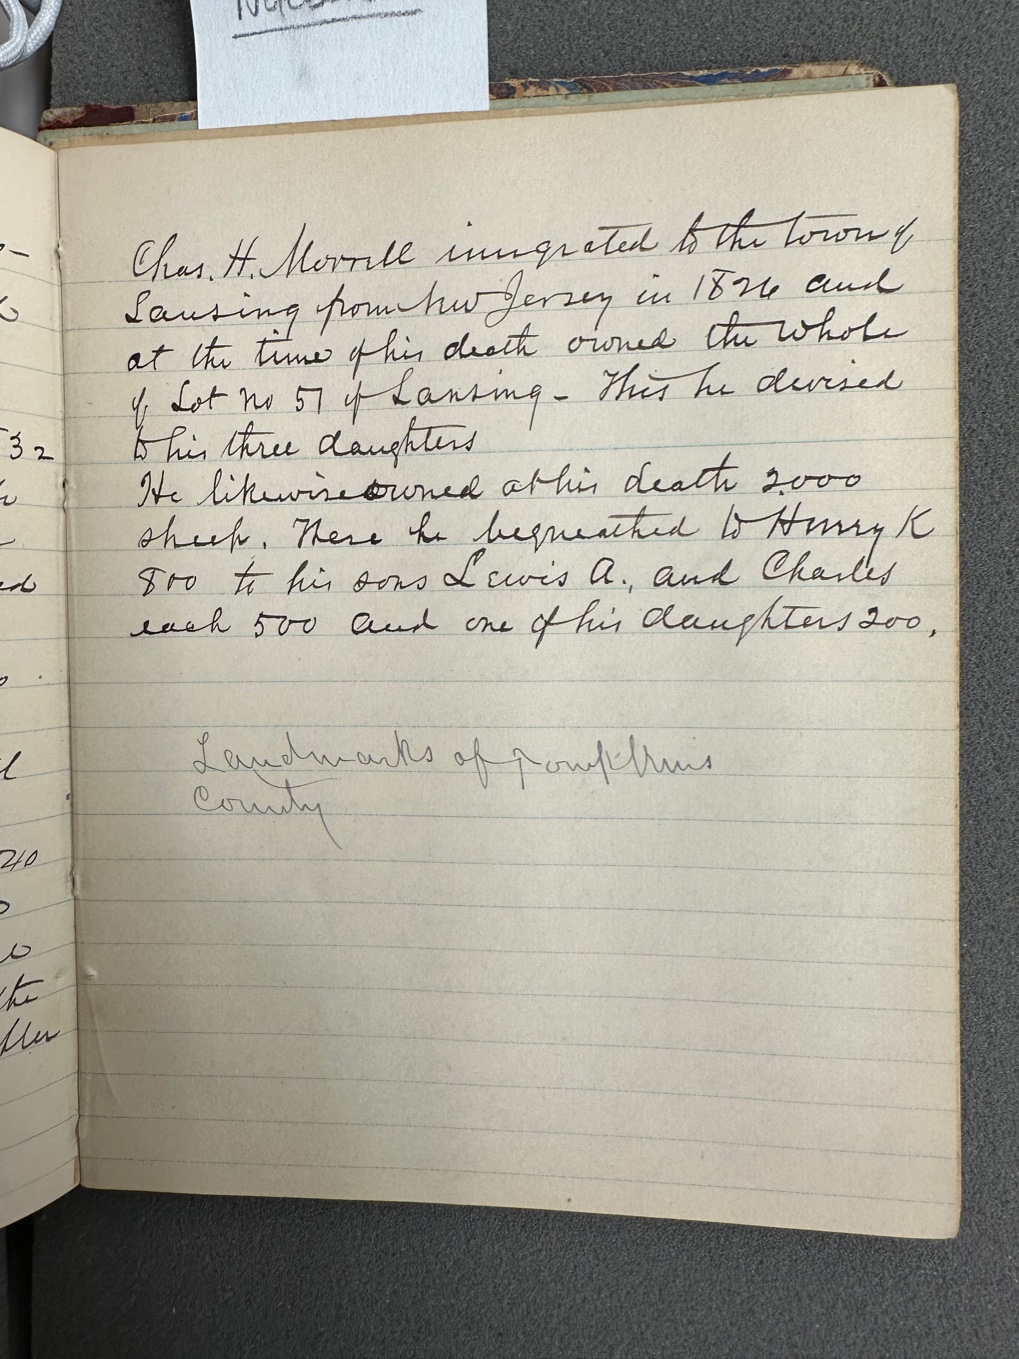 Chas. H. Morrell immigrated to the town of
Lansing from New Jersey in 1826 and
at the time of his death owned the whole
of Lot no 51 of Lansing - This he devised
to his three daughters
He likewise owned at his death 2.000
sheep. These he bequeathed to Henry K
800 to his sons Lewis A., and Charles
each 500 and one of his daughters 200.
Landmarks of Tompkins
County
32
ed
40
the